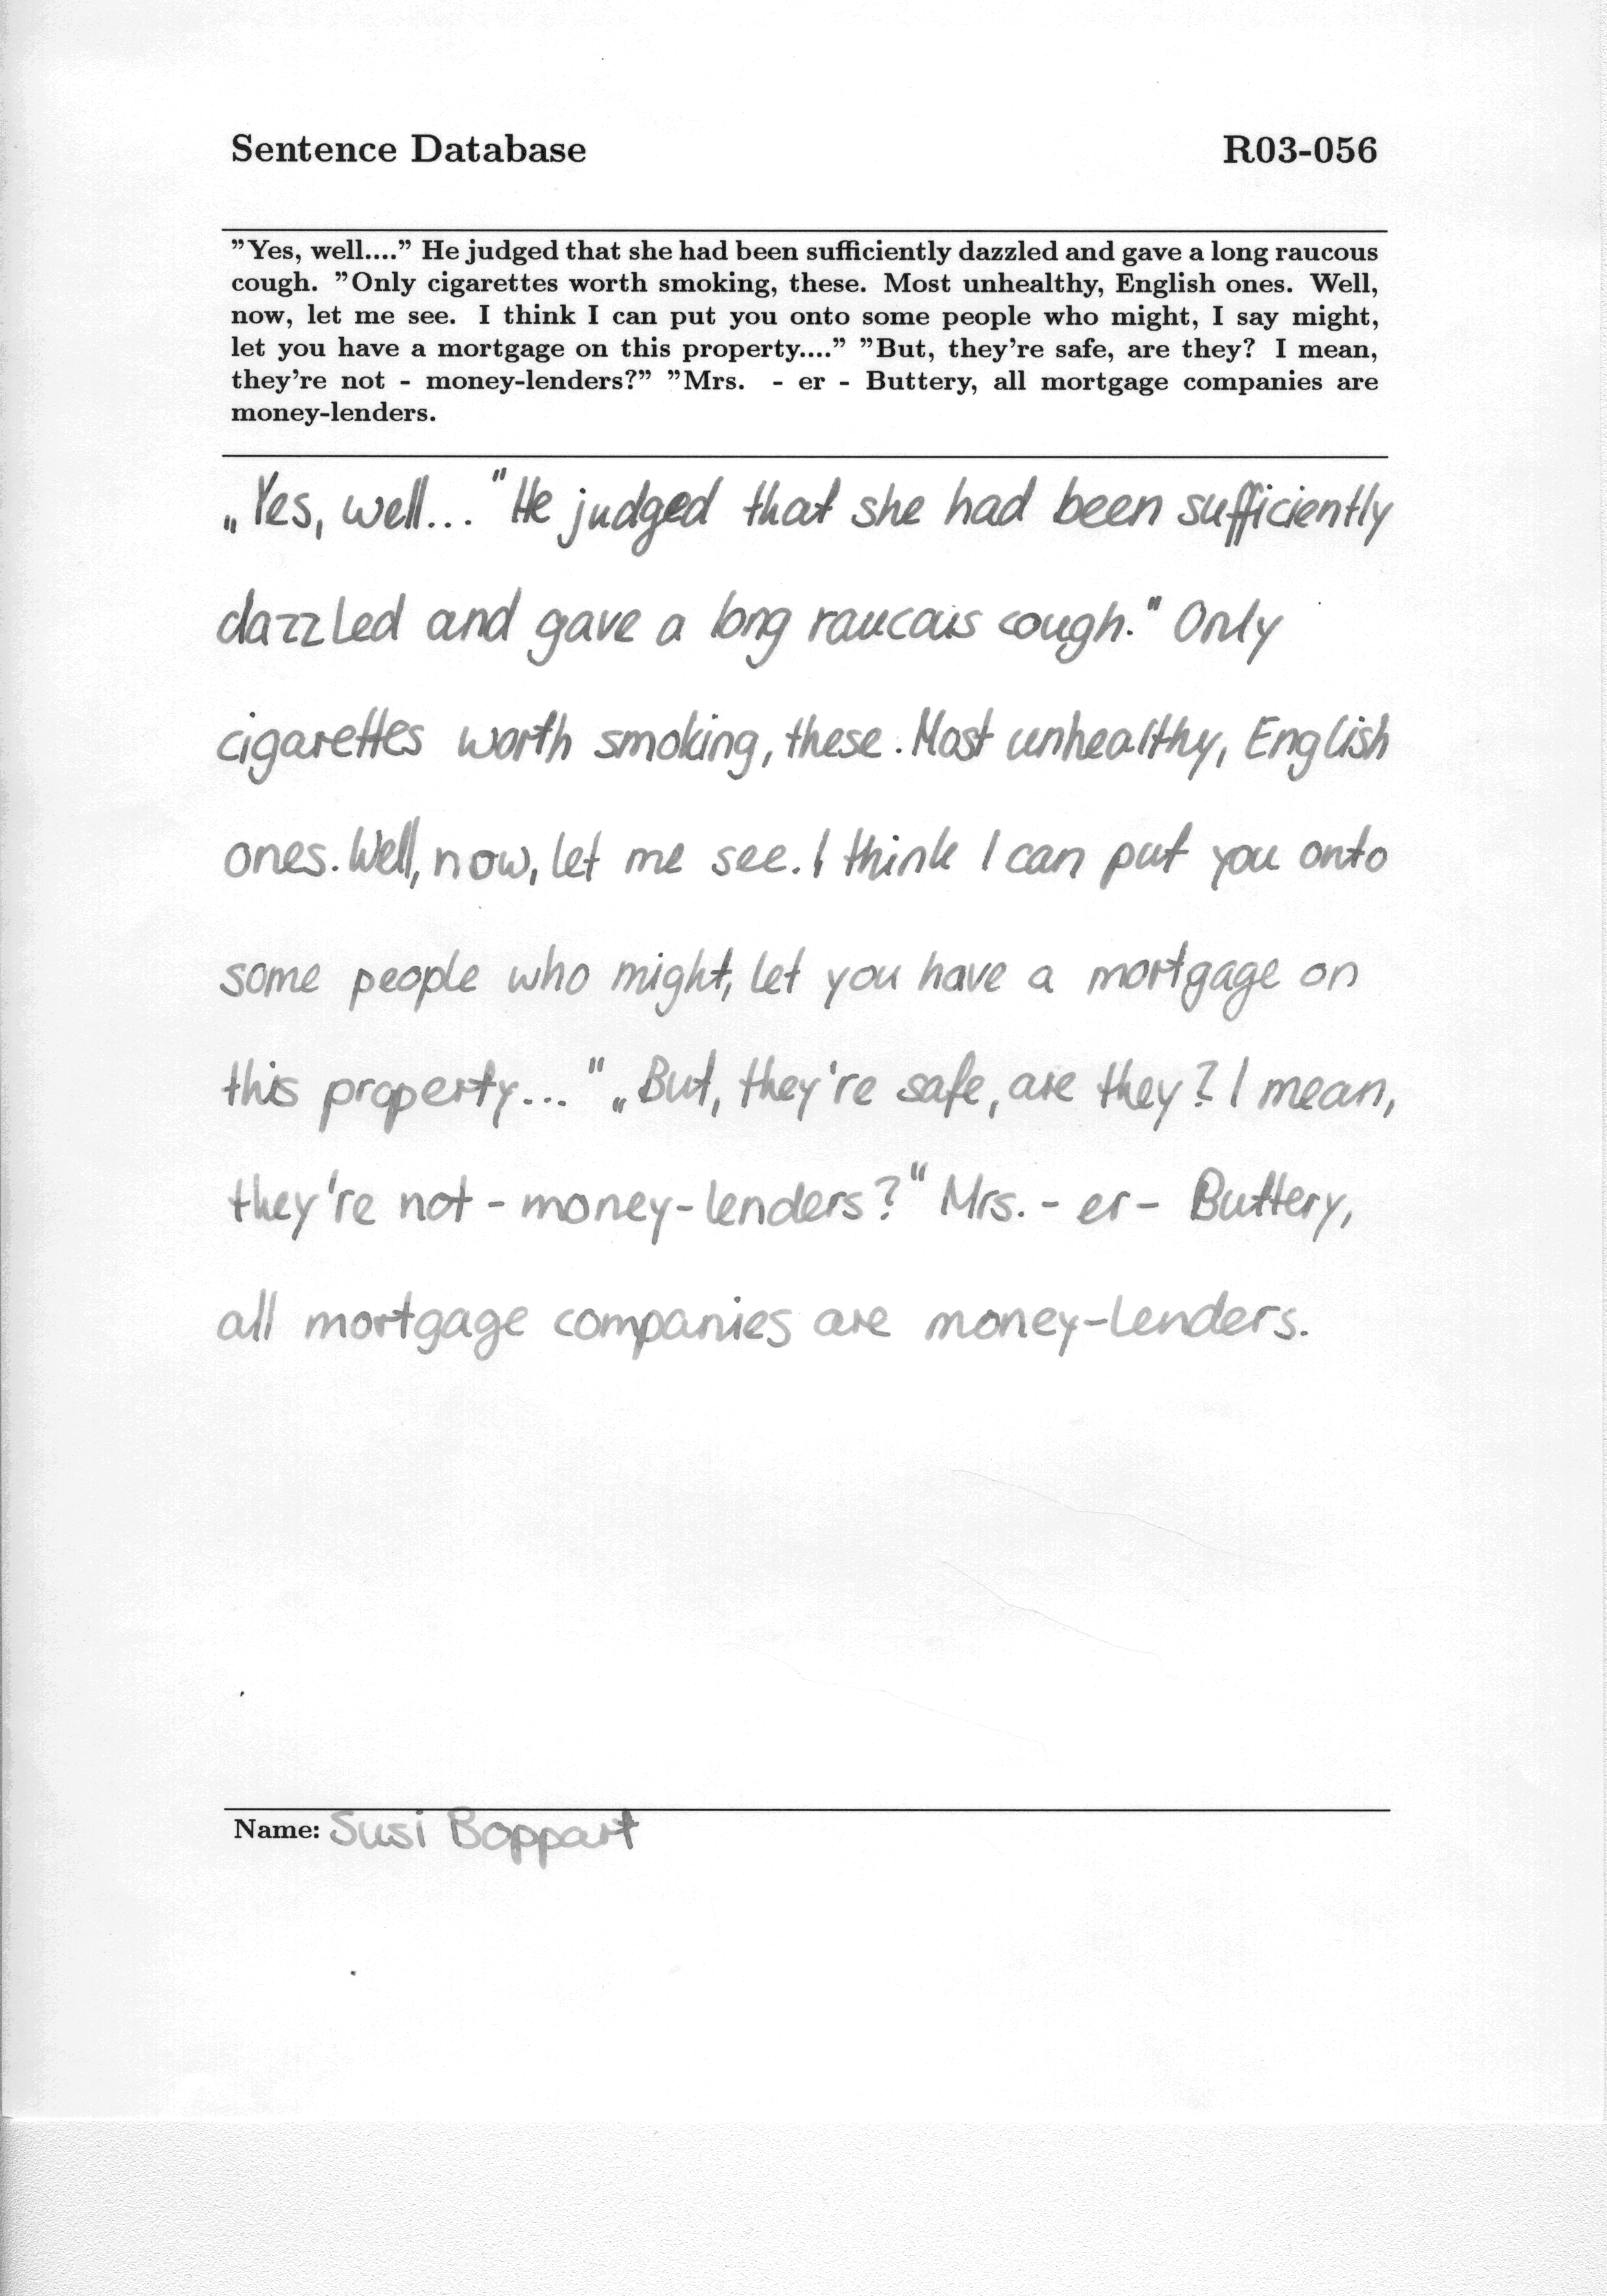 Sentence Database R03-056
"Yes, well...." He judged that she had been sufficiently dazzled and gave a long raucous
cough. "Only cigarettes worth smoking, these. Most unhealthy, English ones. Well,
now, let me see. I think I can put you onto some people who might, I say might,
let you have a mortgage on this property...." "But, they're safe, are they? I mean,
they're not - money-lenders?" "Mrs. - er - Buttery, all mortgage companies are
money-lenders.
„Yes, well..." He judged that she had been sufficiently
dazzled and gave a long raucous cough." Only
cigarettes worth smoking, these. Most unhealthy, English
ones. Well, now, let me see. I think I can put you onto
some people who might, let you have a mortgage on
this property..." „But, they're safe, are they? I mean,
they're not - money-lenders?" Mrs. - er - Buttery,
all mortgage companies are money-lenders.
Name: Susi Boppart